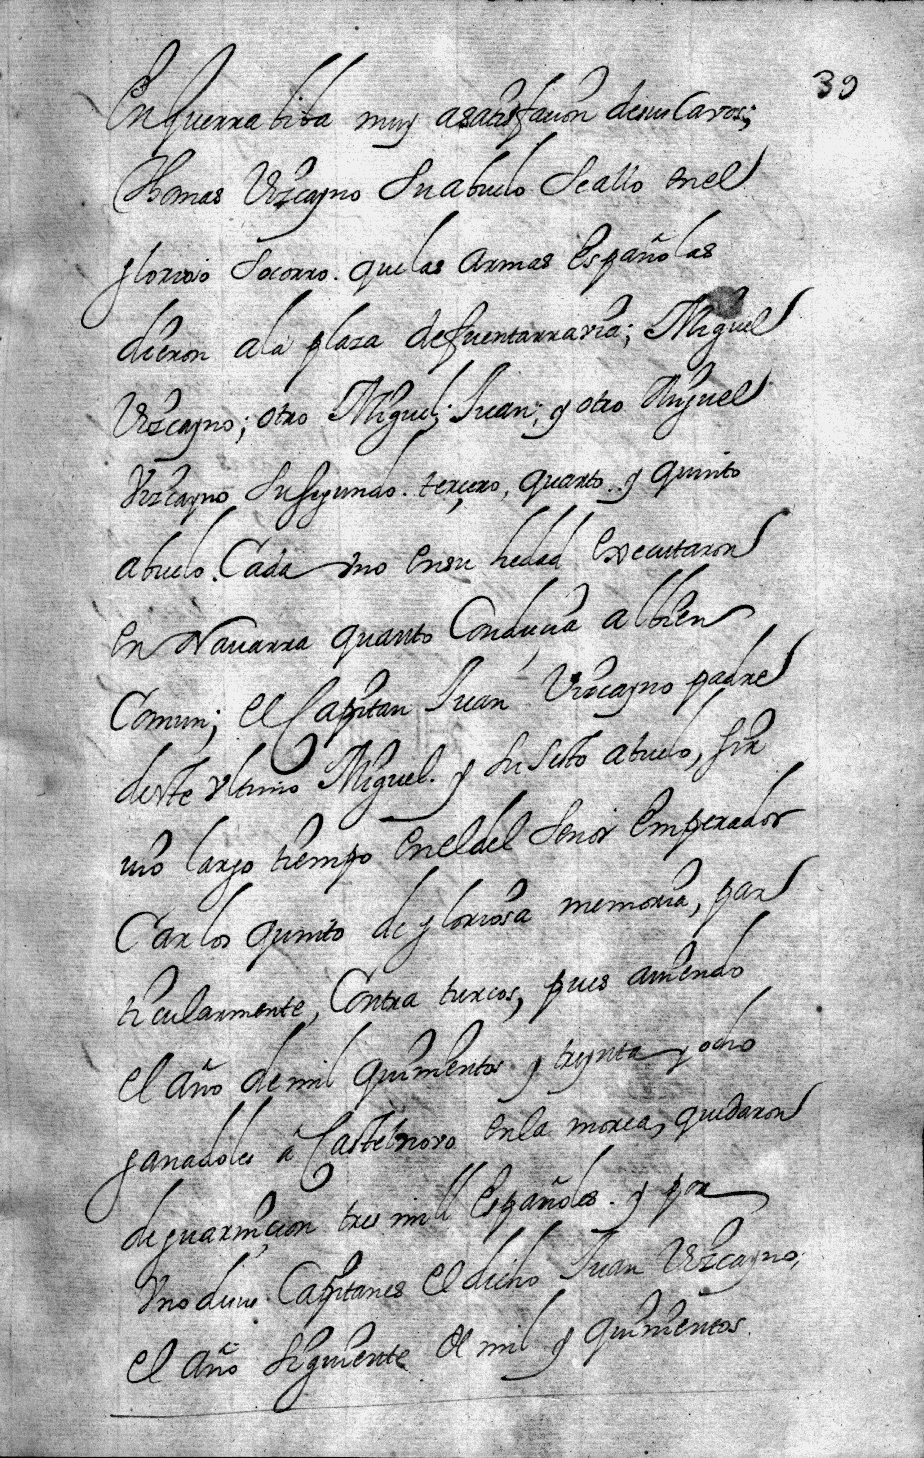 39
En guerra biba muy a satisfacion de sus Cavos;
Thomas Vizcayno Su abuelo Se allo en el
glorioso Socorro. que las armas Españolas
dieron a la plaza de fuentarravia; Miguel
Vizcayno; otro Miguel; Juan; y otro Miguel
Vizcayno Su segundo. terçero, quarto. y quinto
abuelo. Cada vno en su hedad executaron
en Navarra quanto Conduçia al bien
Comun; el Capitan Juan Vizcayno padre
deste vltimo Miguel. y Su Sesto abuelo, sir
uio largo tiempo en el del Señor Emperador
Carlos quinto de gloriosa memoria, par
ticularmente, Contra turcos, pues auiendo
el año de mil quinientos y treynta y ocho
ganadoles â Castelnovo en la morea, quedaron
de guarniçion tres mill Españoles. y por
Vno de sus Capitanes el dicho Juan Vizcayno,
el año Siguiente de mil y quinientos